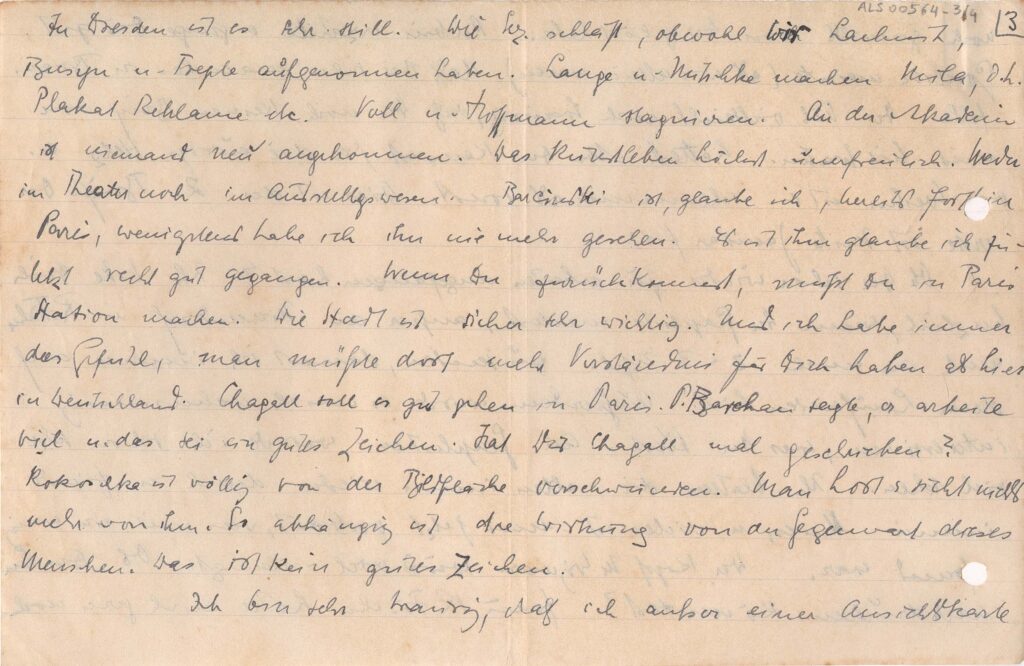 ALS 00564-3/4
3
In Dresden ist es sehr still. Die Sez. schläft, obwohl wir Lachnit,
Busyn u. Treple aufgenommen haben. Lange u. Mitschke machen Mila, d.h.
Plakat Reklame etc. Voll u. Hoffmann stagnieren. An der Akademie
ist niemand neu angekommen. Das Kunstleben höchst unerfreulich. Weder
im Theater noch im Ausstellgswesen. Barcinski ist, glaube ich, bereits fort in
Paris, wenigstens habe ich ihn nie mehr gesehen. Es ist ihm glaube ich zu-
letzt recht gut gegangen. Wenn Du zurückkommst, mußt Du in Paris
Station machen. Die Stadt ist sicher sehr wichtig. Und ich habe immer
das Gefühl, man müßte dort mehr Verständnis für Dich haben als hier
in Deutschland. Chagall soll es gut gehen in Paris. P. Barchan sagte, er arbeite
viel u. das sei ein gutes Zeichen. Hat Dir Chagall mal geschrieben?
Kokoschka ist völlig von der Bildfläche verschwunden. Man hört u. sieht nichts
mehr von ihm. So abhängig ist die Wirkung von der Gegenwart dieses
Menschen. Das ist kein gutes Zeichen.
Ich bin sehr traurig, daß ich außer einer Ansichtskarte